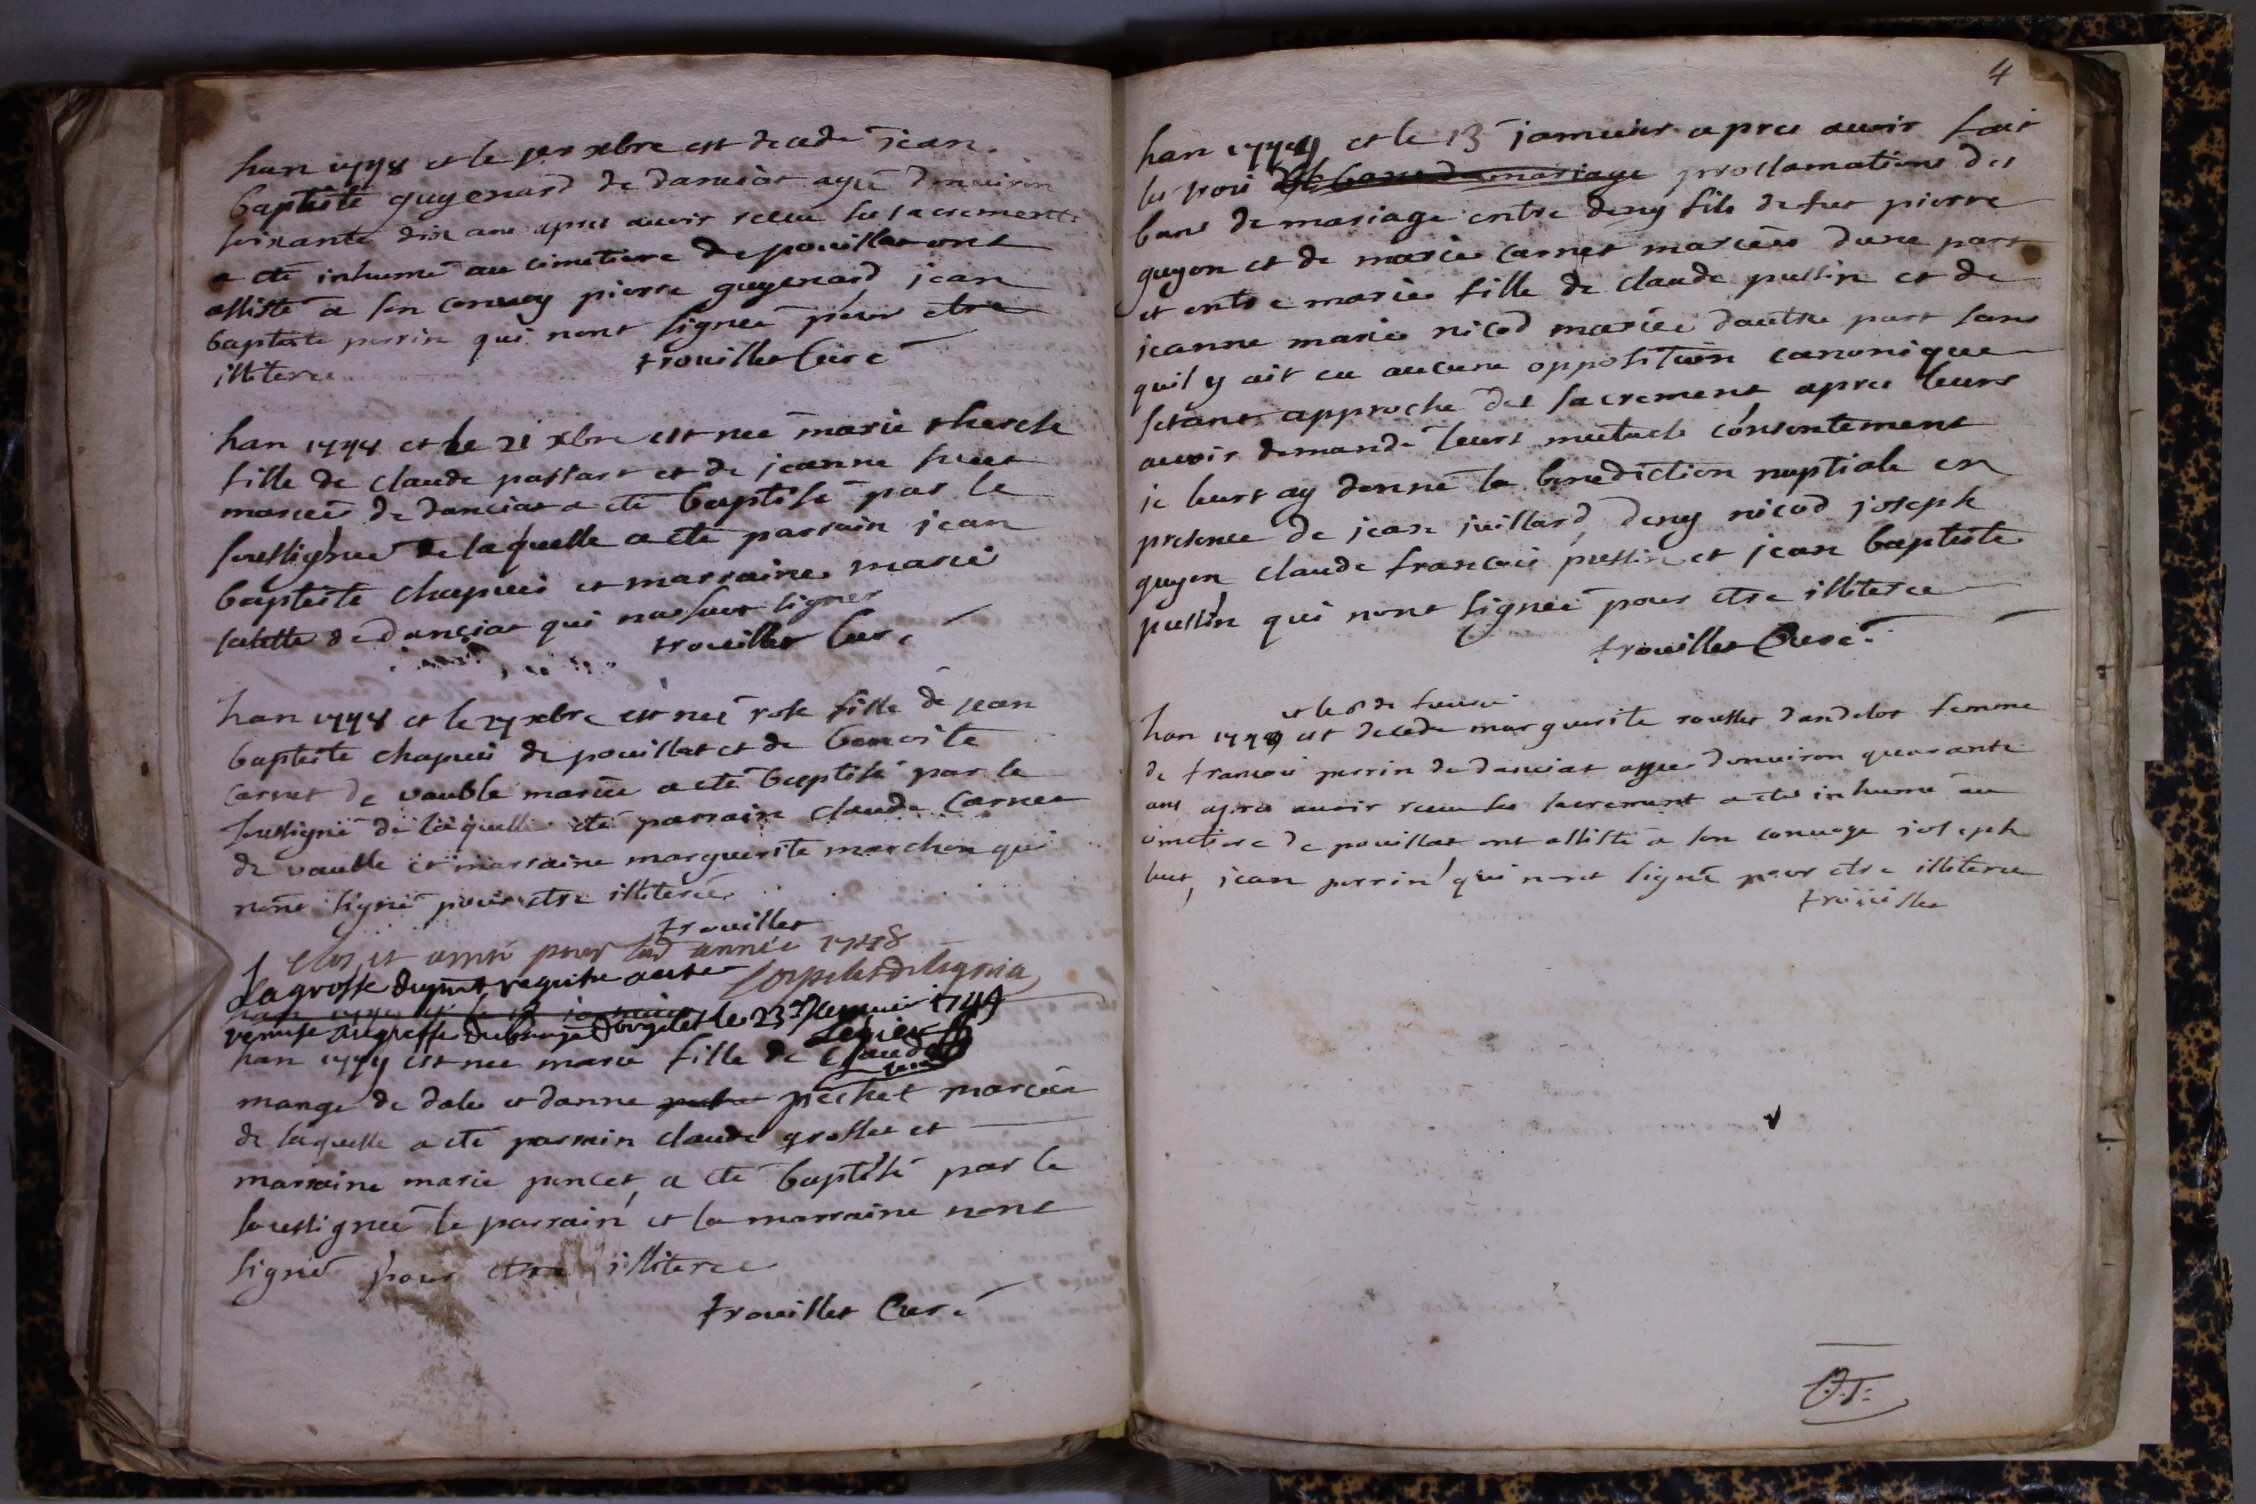 han 1748 et le xbre est decede jean
baptiste guyenard de danciat agé denviron
soixante dix ans apres avoir receu les sacrements
a eté inhumé au cimetiere de pouillat ont
assisté a son convoy pierre guyenard jean
baptiste perrin qui nont signée pour etre
illiteree trouillet Curé
han 1748 et le 21 xbre est nee marie therese
fille de claude passart et de jeanne
mariés de danciat a eté baptisé par le
soussignee de laquelle a eté parrain jean
baptiste chapuis et marraine marie
de danciat qui na sceut signer
trouillet Curé
han 1748 et le 27 xbre est née rose fille de jean
baptiste chapuis de pouillat et de benoite
carnet de vauble mariée a eté baptisé par le
soussigné de laquelle eté parrain claude carnet
de vauble et marraine marguerite marchon qui
nont signé pour etre illiteree
trouillet
Clos et arresté pour lad année 1748
La grosse requise aeté
remise au greffe du dorgelet le 23 janvier 1749
han 1749 est nee marie fille de claude
mange de dalee et danne pechet mariée
de laquelle a eté parrain claude grosset et
marraine marie poncet a eté baptisé par le
soussignee le parrain et la marraine nont
signé pour etre illiteree
trouillet Curé
4
han 1749 et le 13 janvier apres avoir fait
les trois proclamations des
bans de mariage entre deny fils de feu pierre
guyon et de marie carnet mariées dune part
et entre marie fille de claude pussin et de
jeanne marie nicod mariée dautre part sans
quil y ait eu aucune opposition canonique
setant approche des sacrement apres leurs
avoir demandé leurs mutuels consentement
je leurs ay donné la benediction nuptiale en
presence de jean juillard, deny nicod joseph
guyon claude francois pussin et jean baptiste
pussin qui nont signée pour etre illiteree
trouillet Curé
et le 8 de
han 1749 est decede marguerite rousset dandelot femme
de francois perrin de danciat agee denviron quarante
ans apres avoir receu les sacrement a eté inhumé au
cimetiere de pouillat ont assisté a son convoye joseph
huet, jean perrin qui nont signé pour etre illiteree
trouillet